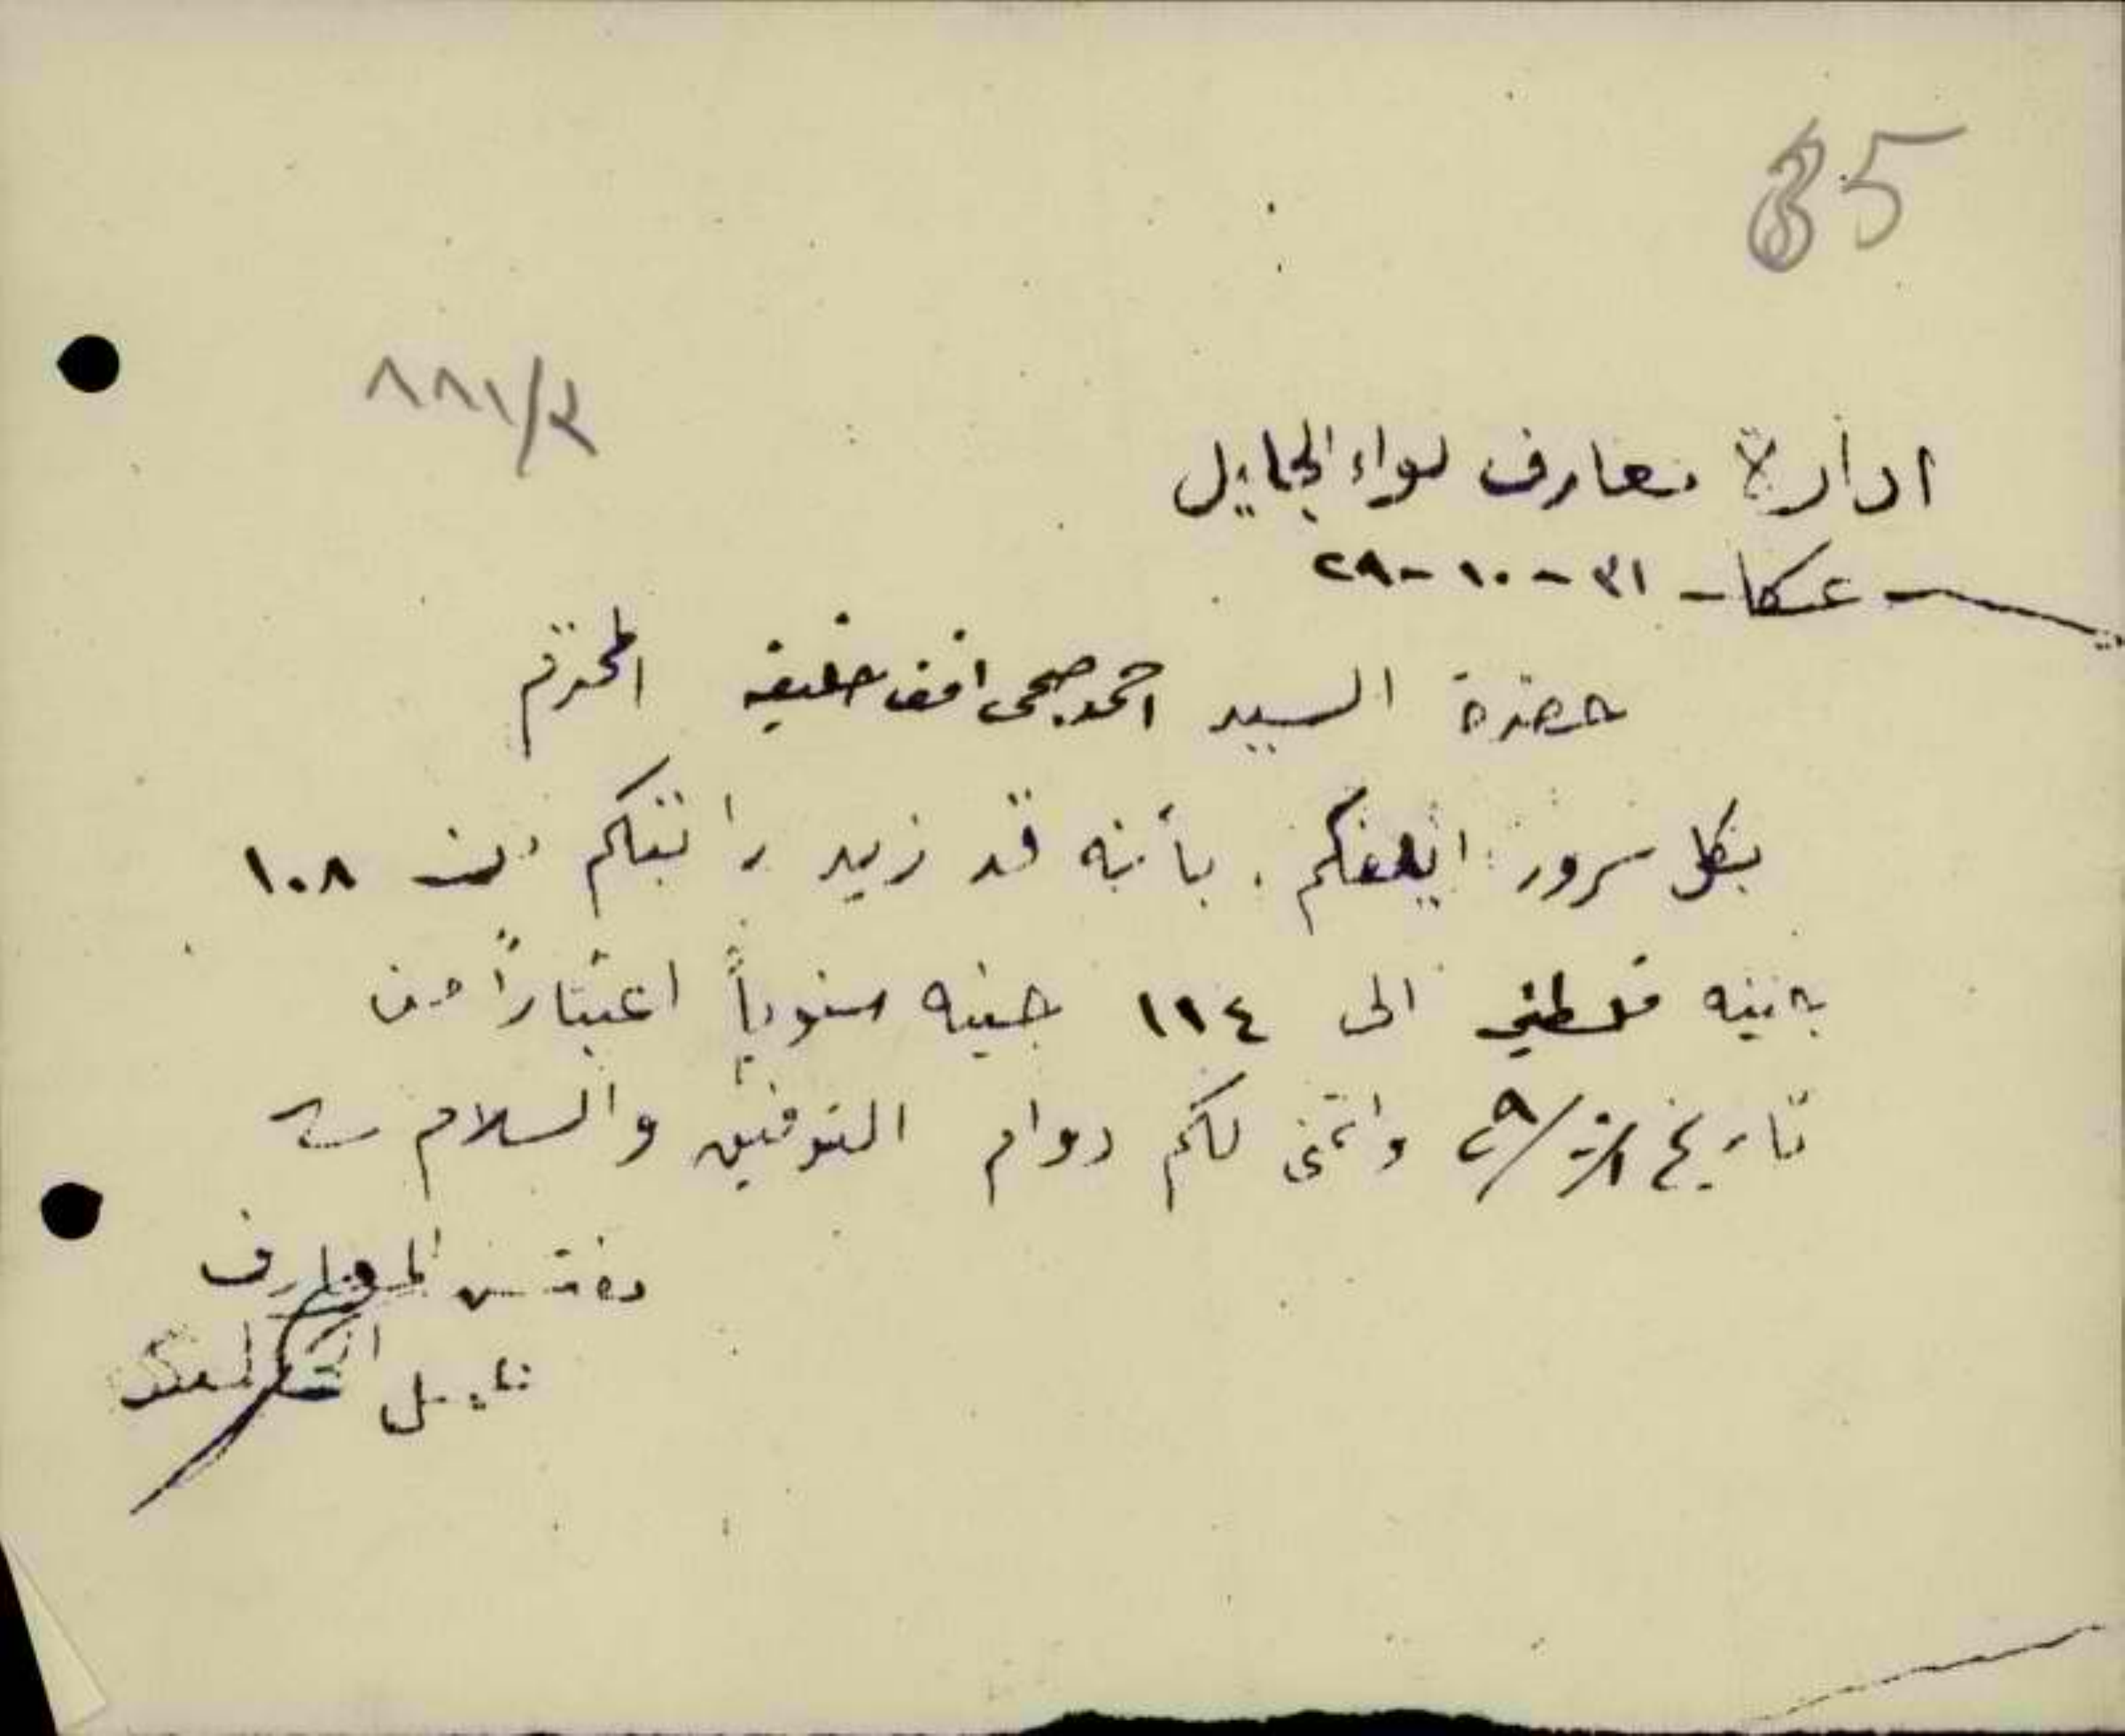 85
٨٨١/٢
ادارة معارف لواء الجليل
عكا - ٣١ - ١٠ - ٢٩
حضرة السيد احمد صبحي افند خليفه المحترم
بكل سرور ابلغكم بأنه قد زيد راتبكم من ١٠٨
جنيه فلسطيني الى ١١٤ جنيه سنوياً اعتباراً من
تاريخ ٢٩/ واتمنى لكم دوام التوفيق والسلام
مفتش المعارف